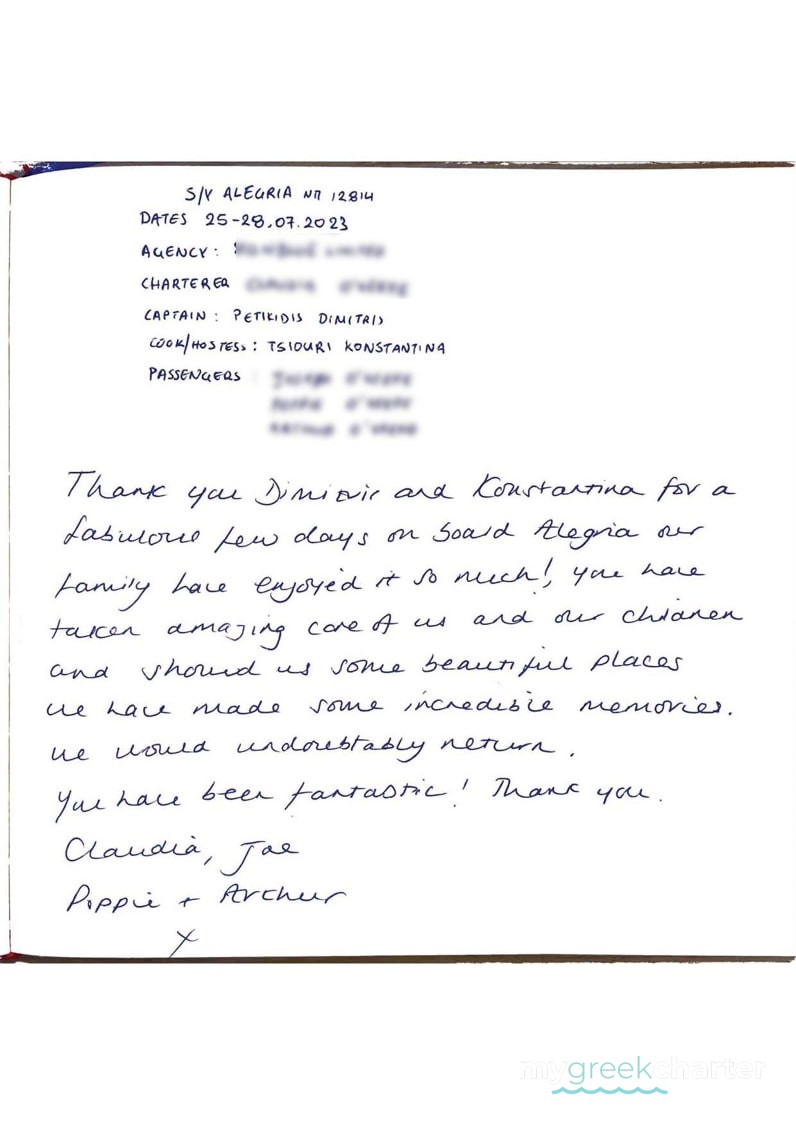 S/Y ALEGRIA ΝΠ 12814
DATES 25-28.07.2023
AGENCY:
CHARTERER
CAPTAIN: PETIKIDIS DIMITRIS
COOK/HOSTESS: TSIOURI KONSTANTINA
PASSENGERS
Thank you Dimitris and Konstantina for a
fabulous few days on board Alegria our
family have enjoyed it so much! you have
taken amazing care of us and our children
and should us some beautiful places
we have made some incredible memories.
we would undoubtably return.
You have been fantastic! Thank you.
Claudia, Joe
Poppie + Archur
x
mygreekcharter